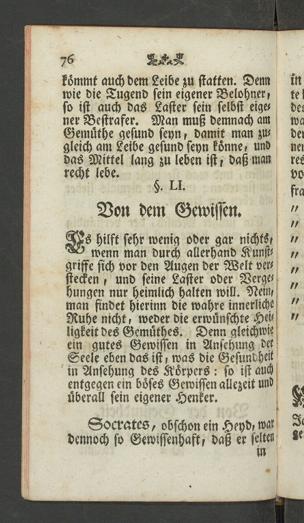 76
kömmt auch dem Leibe zu statten. Denn
wie die Tugend sein eigener Belohner,
so ist auch das Laster sein selbst eige-
ner Bestrafer. Man muß demnach am
Gemüthe gesund seyn, damit man zu-
gleich am Leibe gesund seyn könne, und
das Mittel lang zu leben ist, daß man
recht lebe.
§. LI.
Von dem Gewissen.
Es hilft sehr wenig oder gar nichts,
wenn man durch allerhand Kunst-
griffe sich vor den Augen der Welt ver-
stecken, und seine Laster oder Verge-
hungen nur heimlich halten will. Nein,
man findet hierinn die wahre innerliche
Ruhe nicht, weder die erwünschte Hei-
ligkeit des Gemüthes. Denn gleichwie
ein gutes Gewissen in Ansehung der
Seele eben das ist, was die Gesundheit
in Ansehung des Körpers: so ist auch
entgegen ein böses Gewissen allezeit und
überall sein eigener Henker.
Socrates, obschon ein Heyd, war
dennoch so Gewissenhaft, daß er selten
in